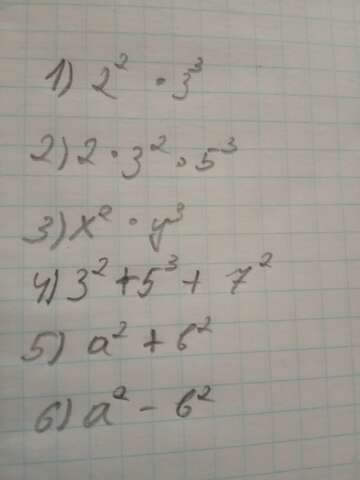 1) 2² · 3³
2) 2 · 3² · 5³
3) x² · y³
4) 3² + 5³ + 7²
5) a² + b²
6) a² - b²